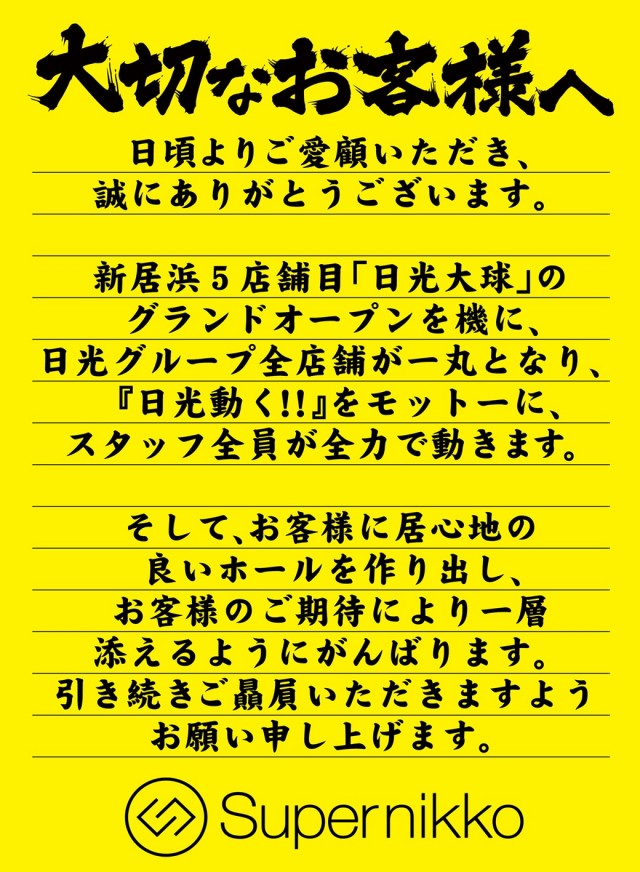 大切なお客様へ
日頃よりご愛顧いただき、
誠にありがとうございます。
新居浜5店舗目「日光大球」の
グランドオープンを機に、
日光グループ全店舗が一丸となり、
『日光動く!!』をモットーに、
スタッフ全員が全力で動きます。
そして、お客様に居心地の
良いホールを作り出し、
お客様のご期待により一層
添えるようにがんばります。
引き続きご贔屓いただきますよう
お願い申し上げます。
Supernikko